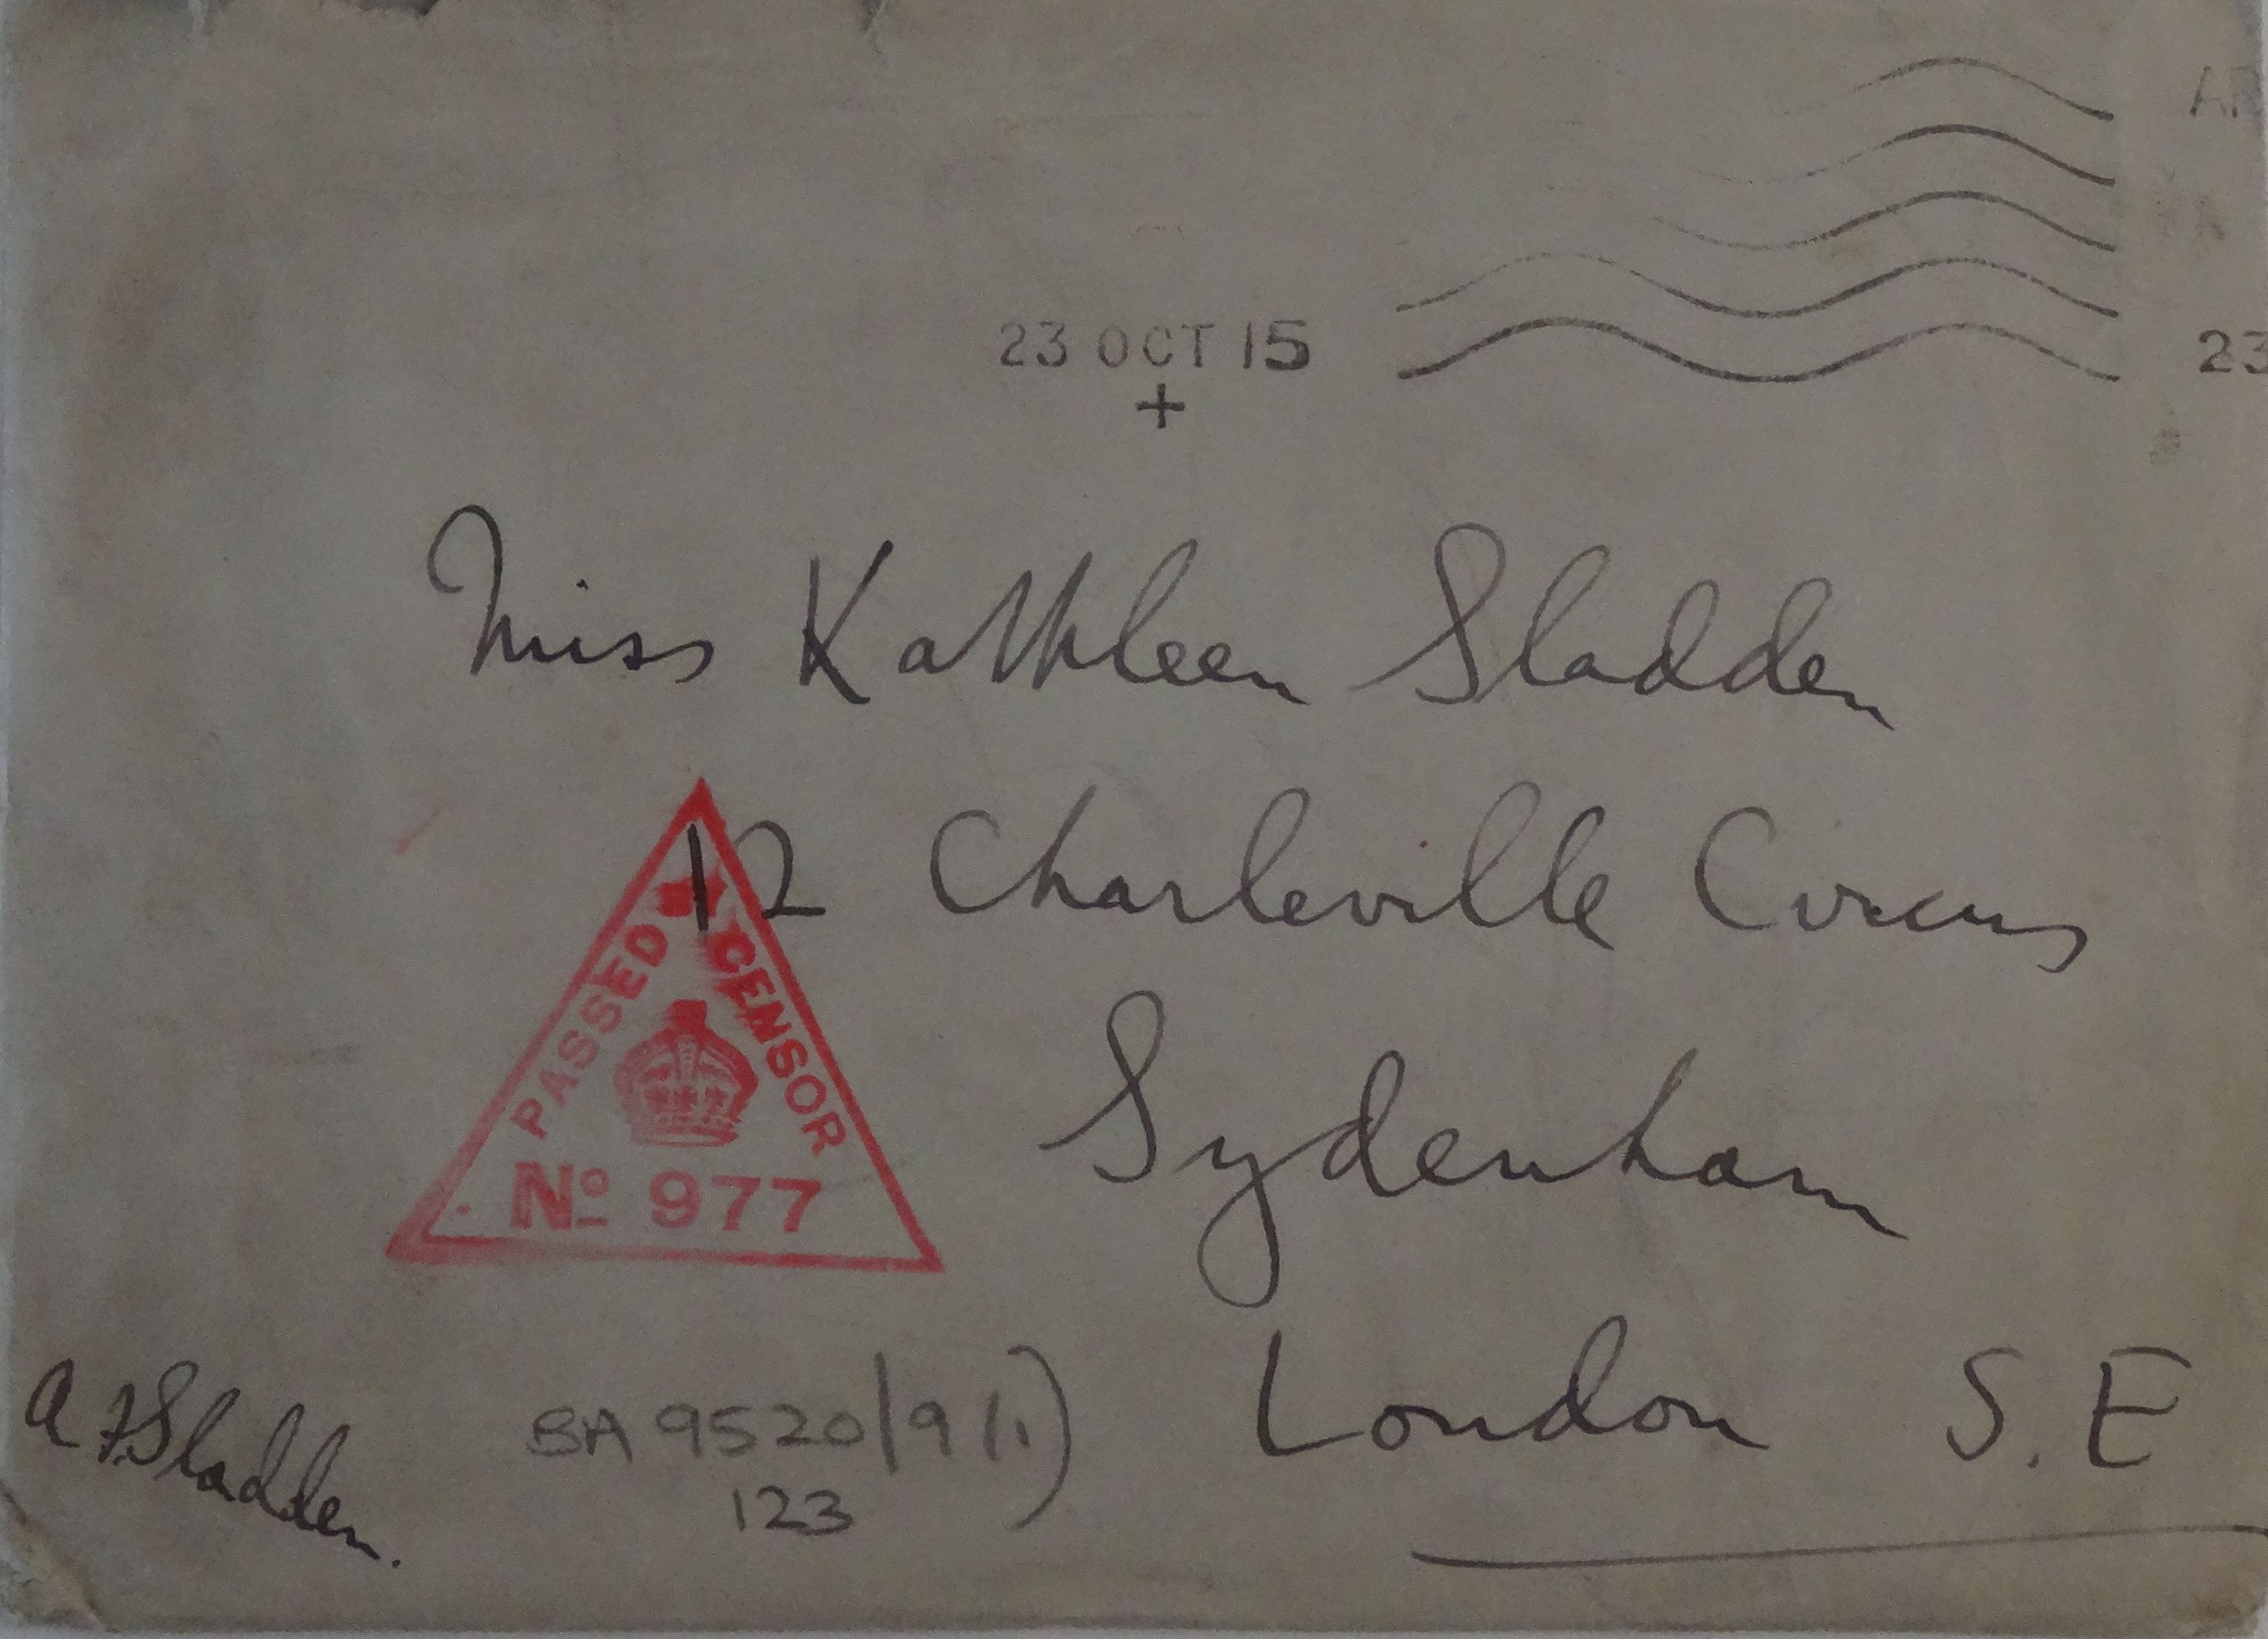 23 OCT 15
+
23
Miss Kathleen Sladden
12 Charleville Circus
Sydenham
London S.E
PASSED CENSOR
No 977
A F Sladden.
BA 9520/9(1)
123